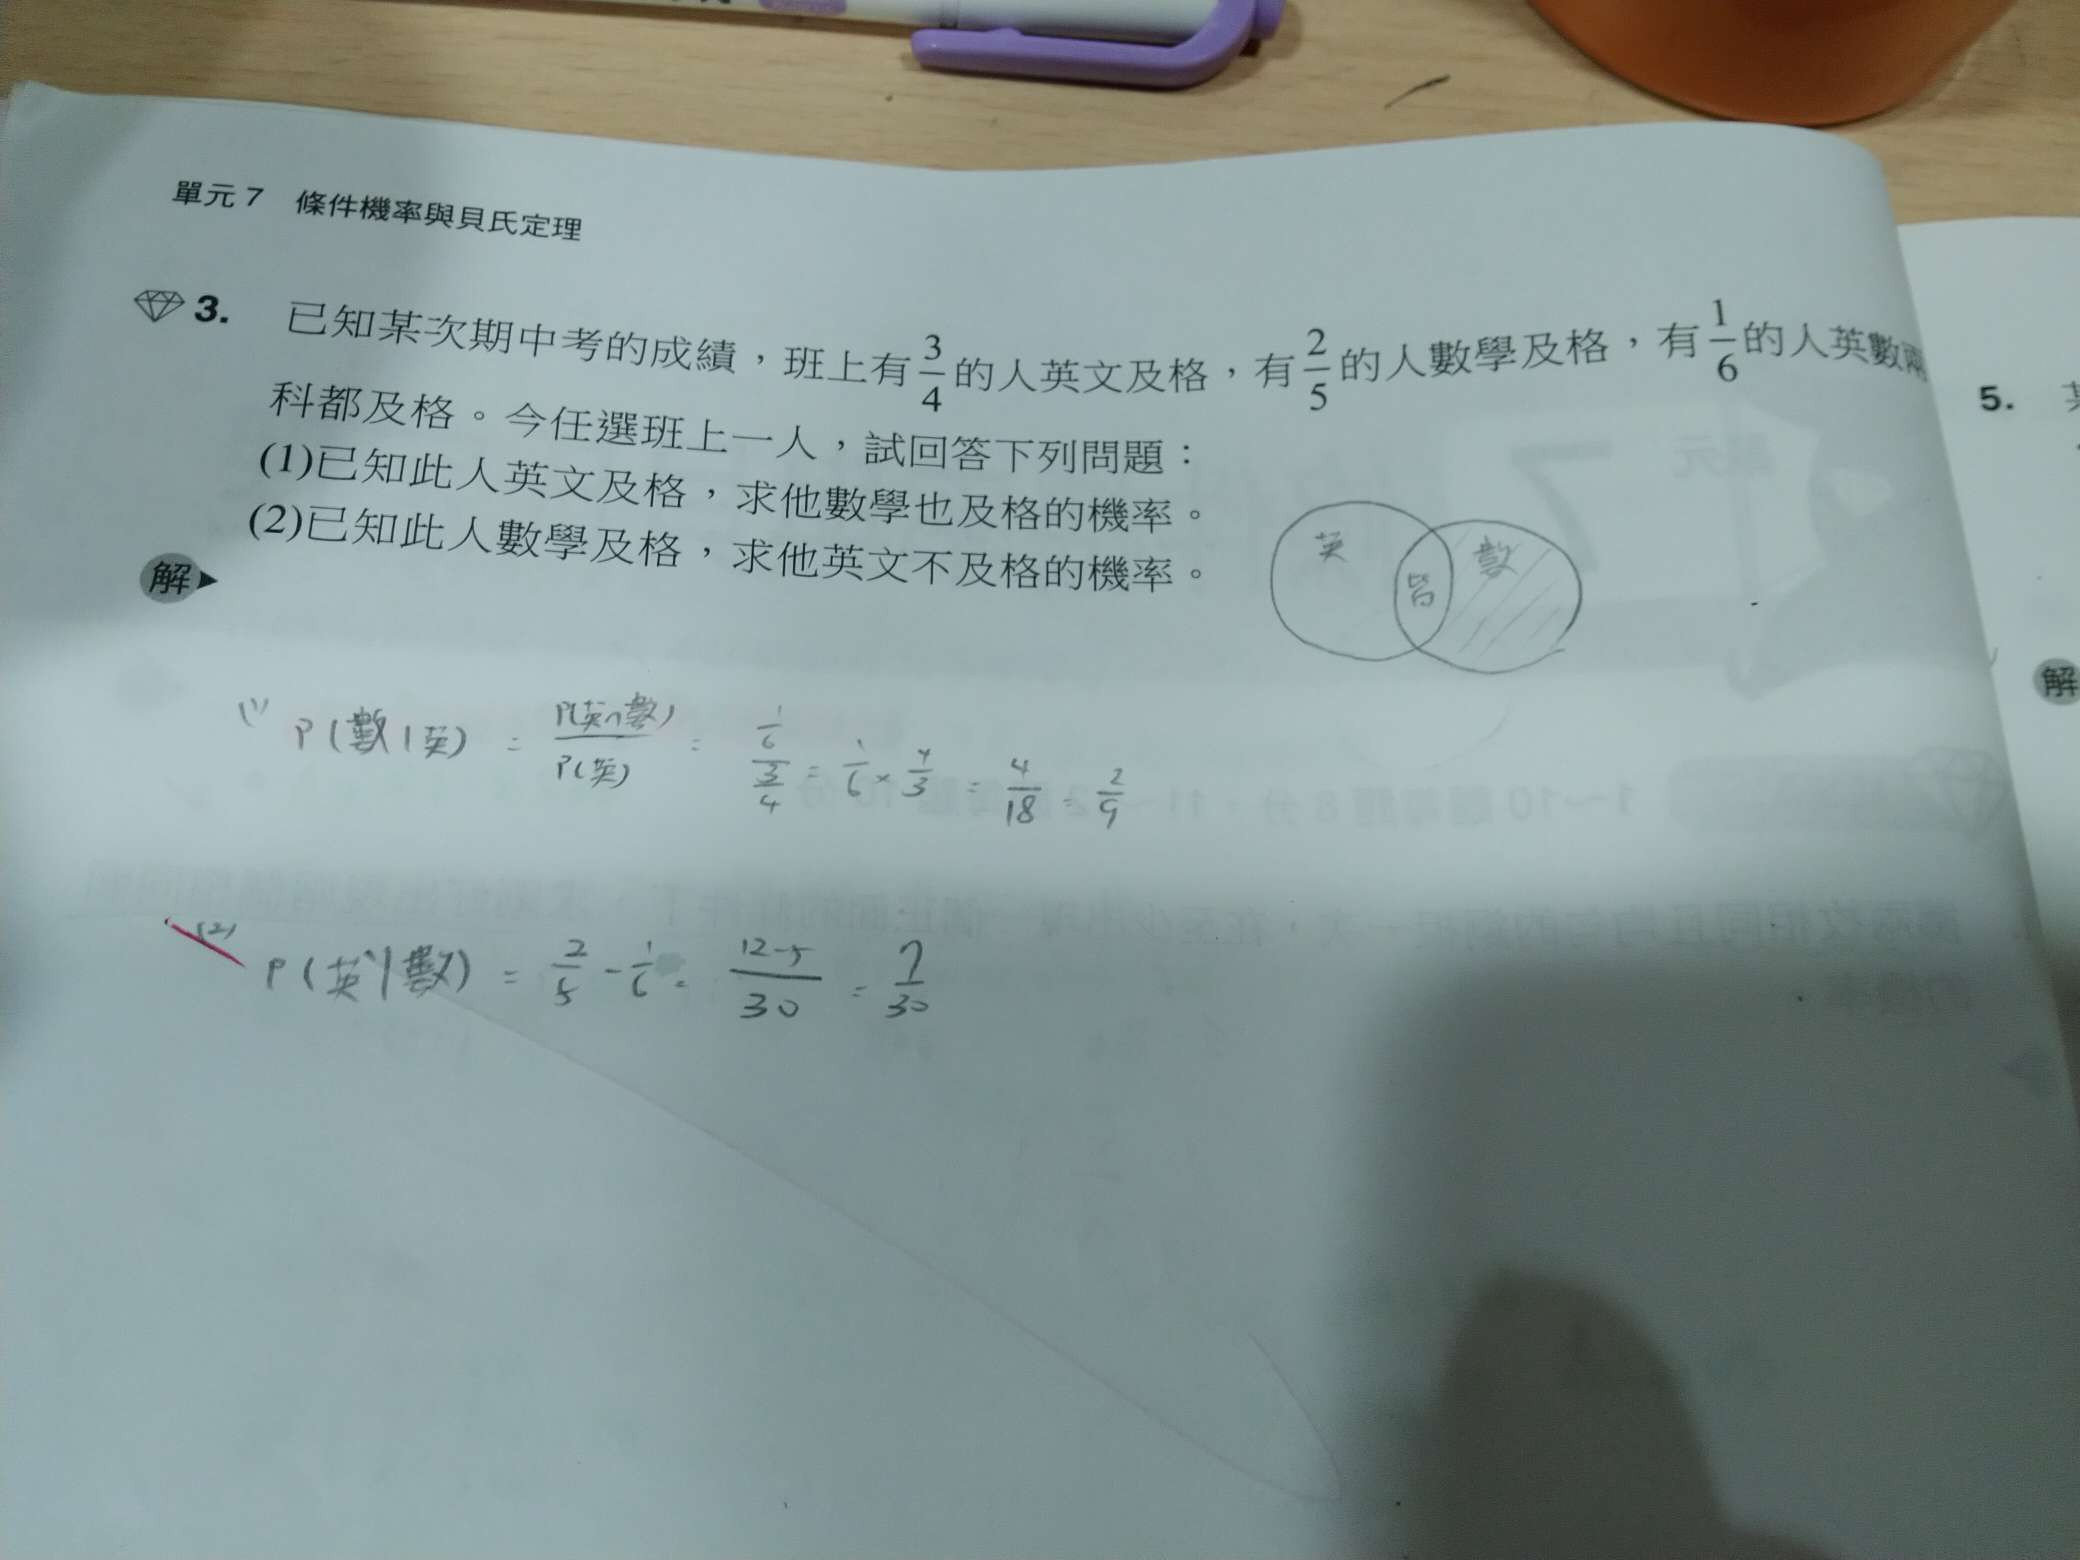 單元 7 條件機率與貝氏定理
3. 已知某次期中考的成績，班上有 3/4 的人英文及格，有 2/5 的人數學及格，有 1/6 的人英數兩
科都及格。今任選班上一人，試回答下列問題：
(1)已知此人英文及格，求他數學也及格的機率。
(2)已知此人數學及格，求他英文不及格的機率。
英 皆 數
解
5.
解
(1) P(數|英) = P(英∩數)/P(英) = (1/6)/(3/4) = 1/6 × 4/3 = 4/18 = 2/9
(2) P(英'|數) = 2/5 - 1/6 = 12-5/30 = 7/30